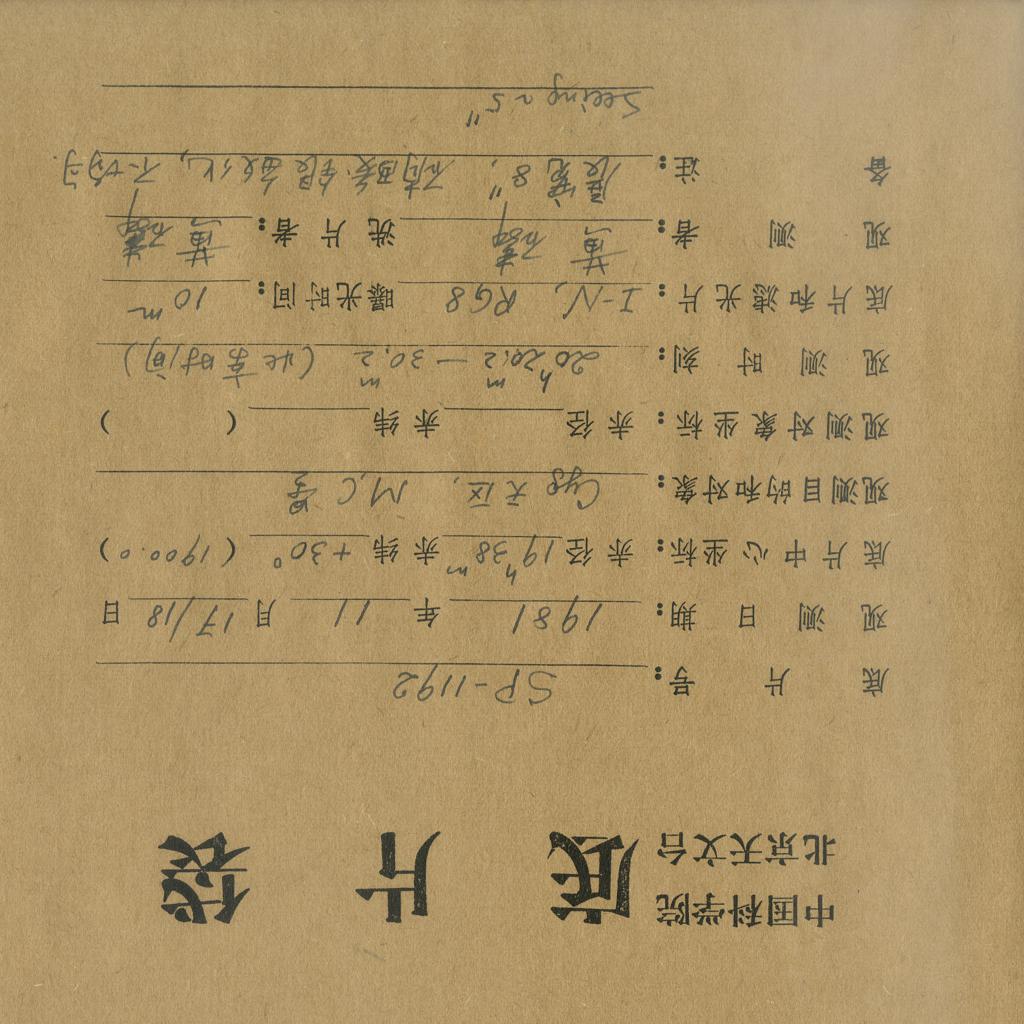 中国科学院
北京天文台
底片袋
底片号: SP-1192
观测日期: 1981年11月17/18日
底片中心坐标: 赤径19h38m赤纬+30°(1900.0)
观测目的和对象: Cyg 天区, M,C星
观测对象坐标: 赤径 赤纬 ( )
观测时刻: 20h20.m2—30.m2 (北京时间)
底片和滤光片: I-N, RG8 曝光时间: 10m
观测者: 黄 洗片者: 黄
备注: 展宽8", 硝酸银敏化, 不均匀
Seeing ~5"